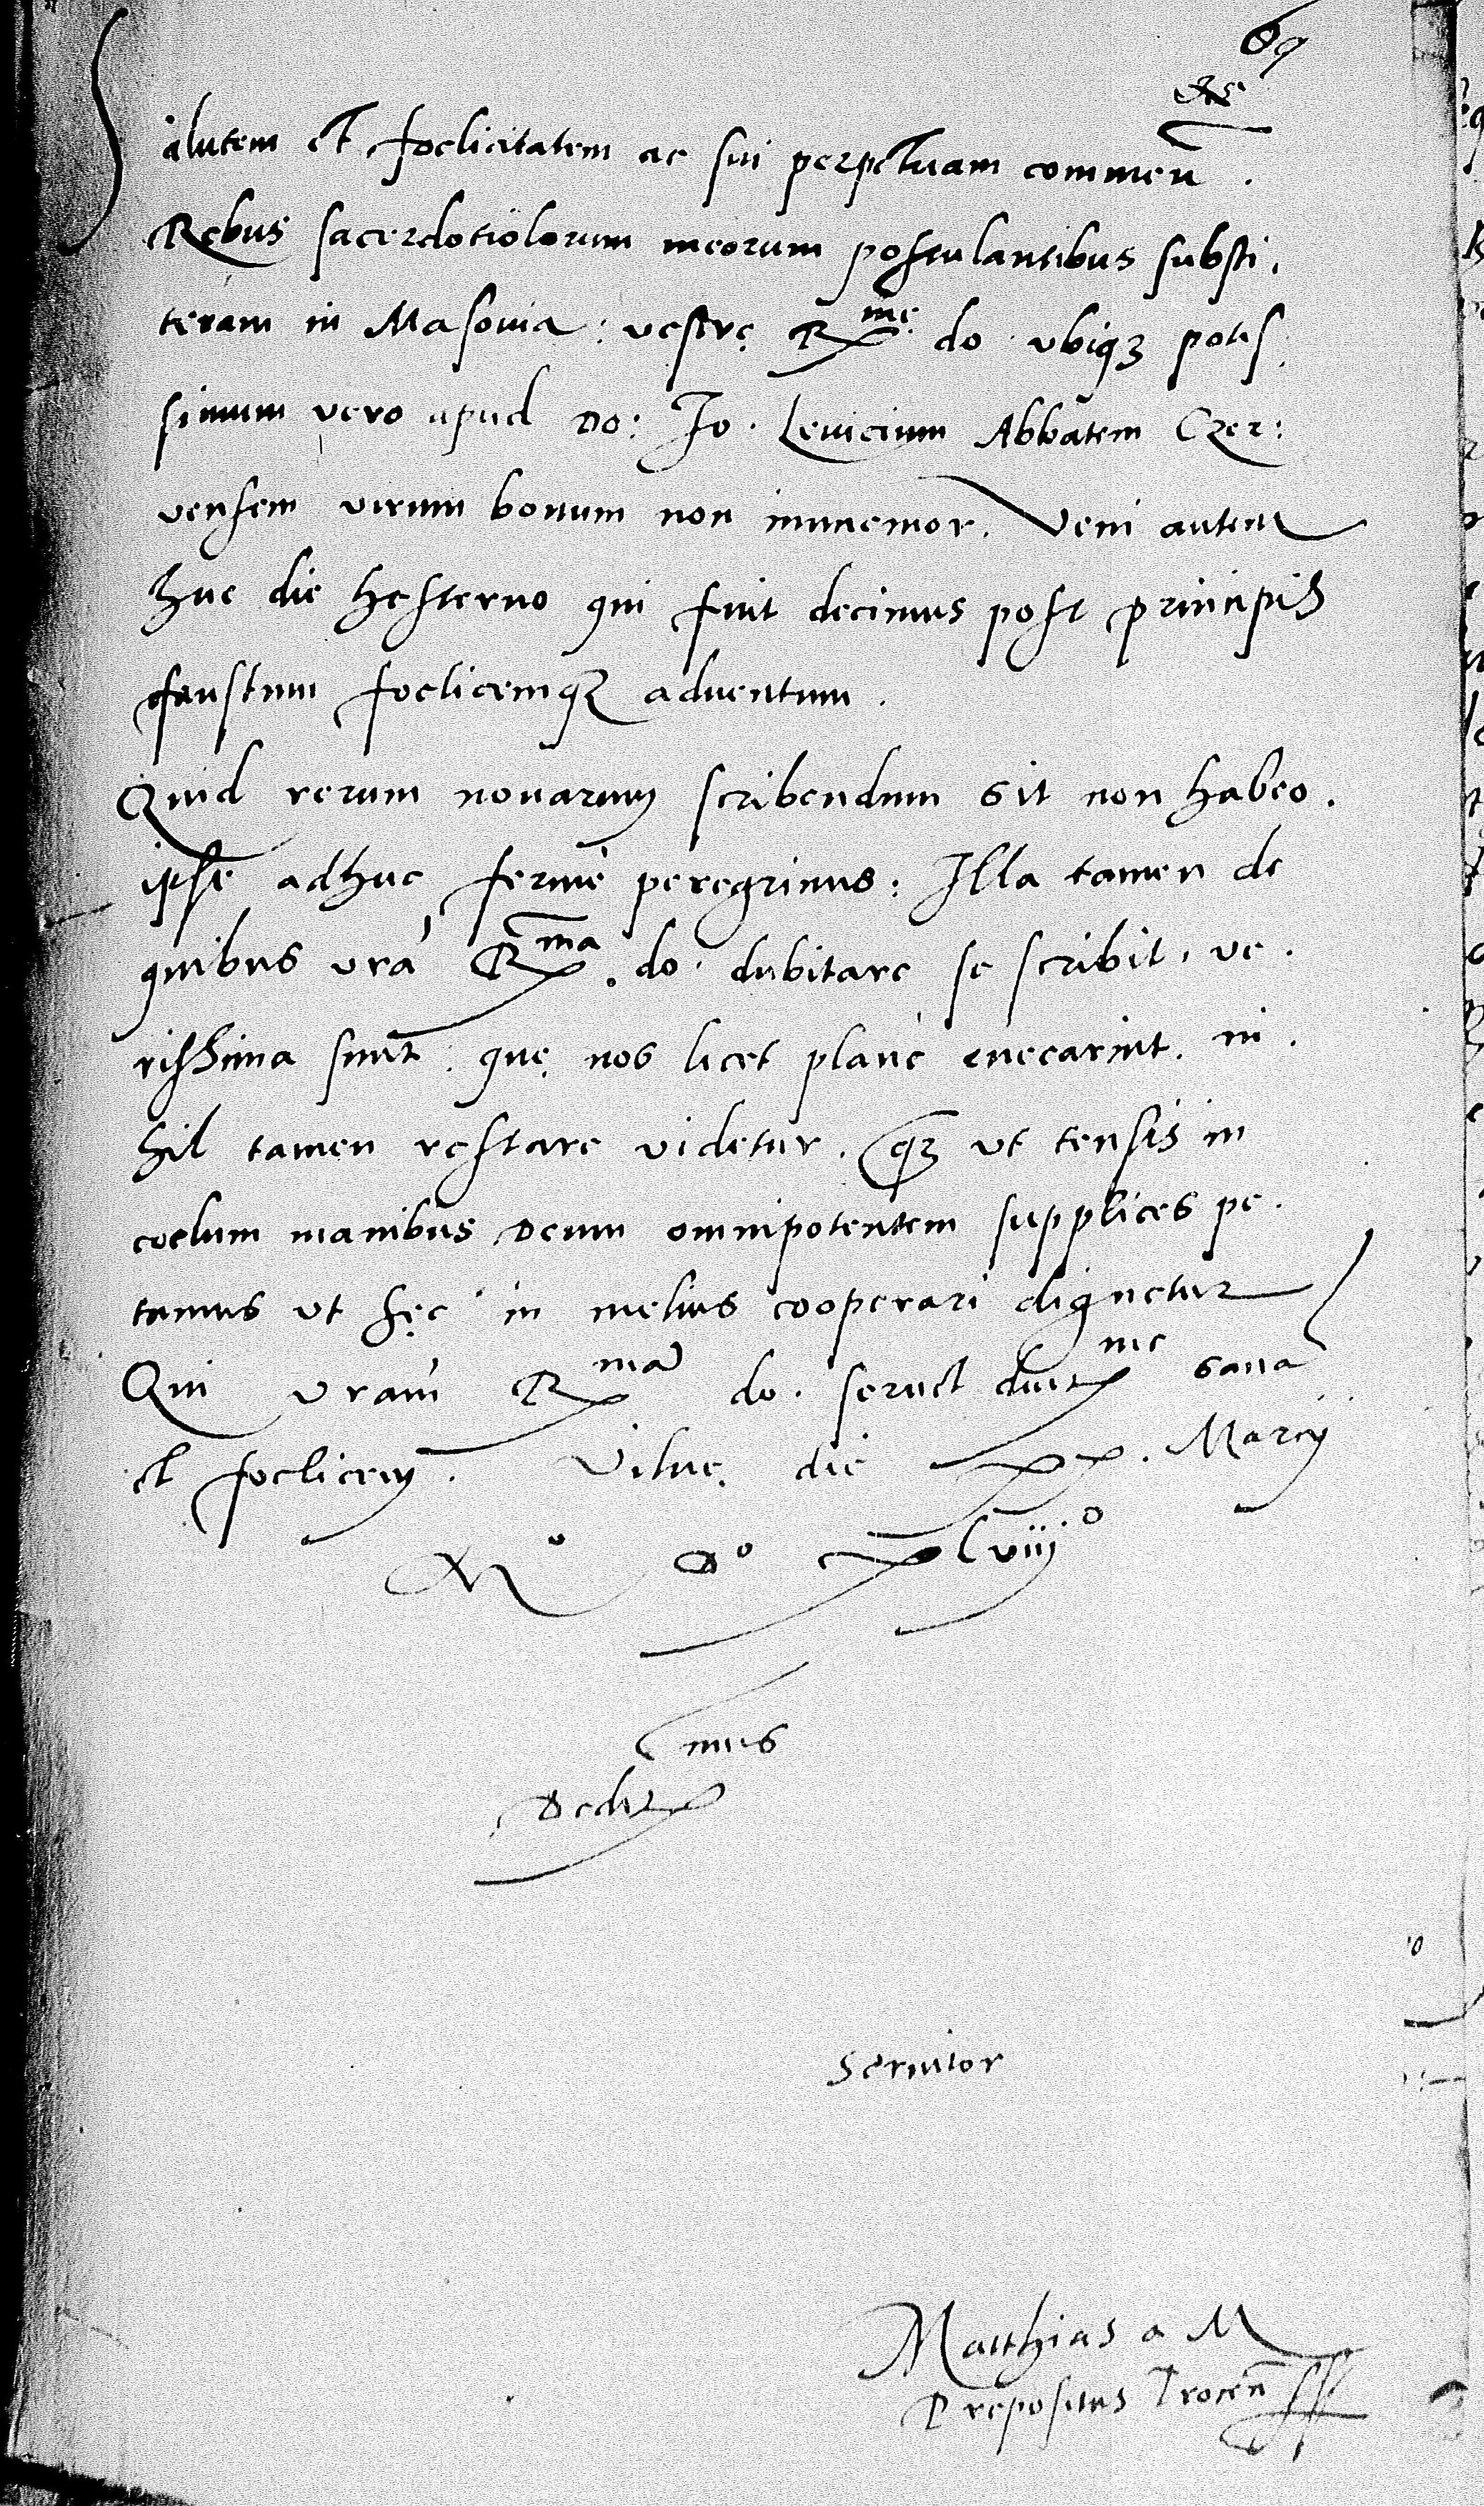 69
Salutem et foelicitatem ac sui perpetuam commeñ.
Rebus sacerdotiolorum meorum postulantibus substi,
teram in Masouia: vestrę Rx^mę do vbiqȝ potis,
simum vero apud Do: Jo. Leuicium Abbatem Czer:
uensem virum bonum non immemor. Veni autem
huc die hesterno qui fuit decimus post principis
faustum foelicemqȝ aduentum.
Quid rerum nouarum scribendum sit non habeo.
ipse adhuc fermè peregrinus: Illa tamen de
quibus vrã Rx^ma. do. dubitare se scribit, ve.
rissima sunt. quę nos licet planè enecarint. ni.
hil tamen restare videtur. qȝ ut tensis in
coelum manibus Deum omnipotentem supplices pe.
tamus ut hęc in melius cooperari dignetur
Qui vram̃ Rx^mã do. seruet diutx^me sanã
et foelicem. Vilnę die xx. Marcij
M° D° xlviij°
Dedtx^mus
Seruitor
Matthias a M
Prepositus Troceñ